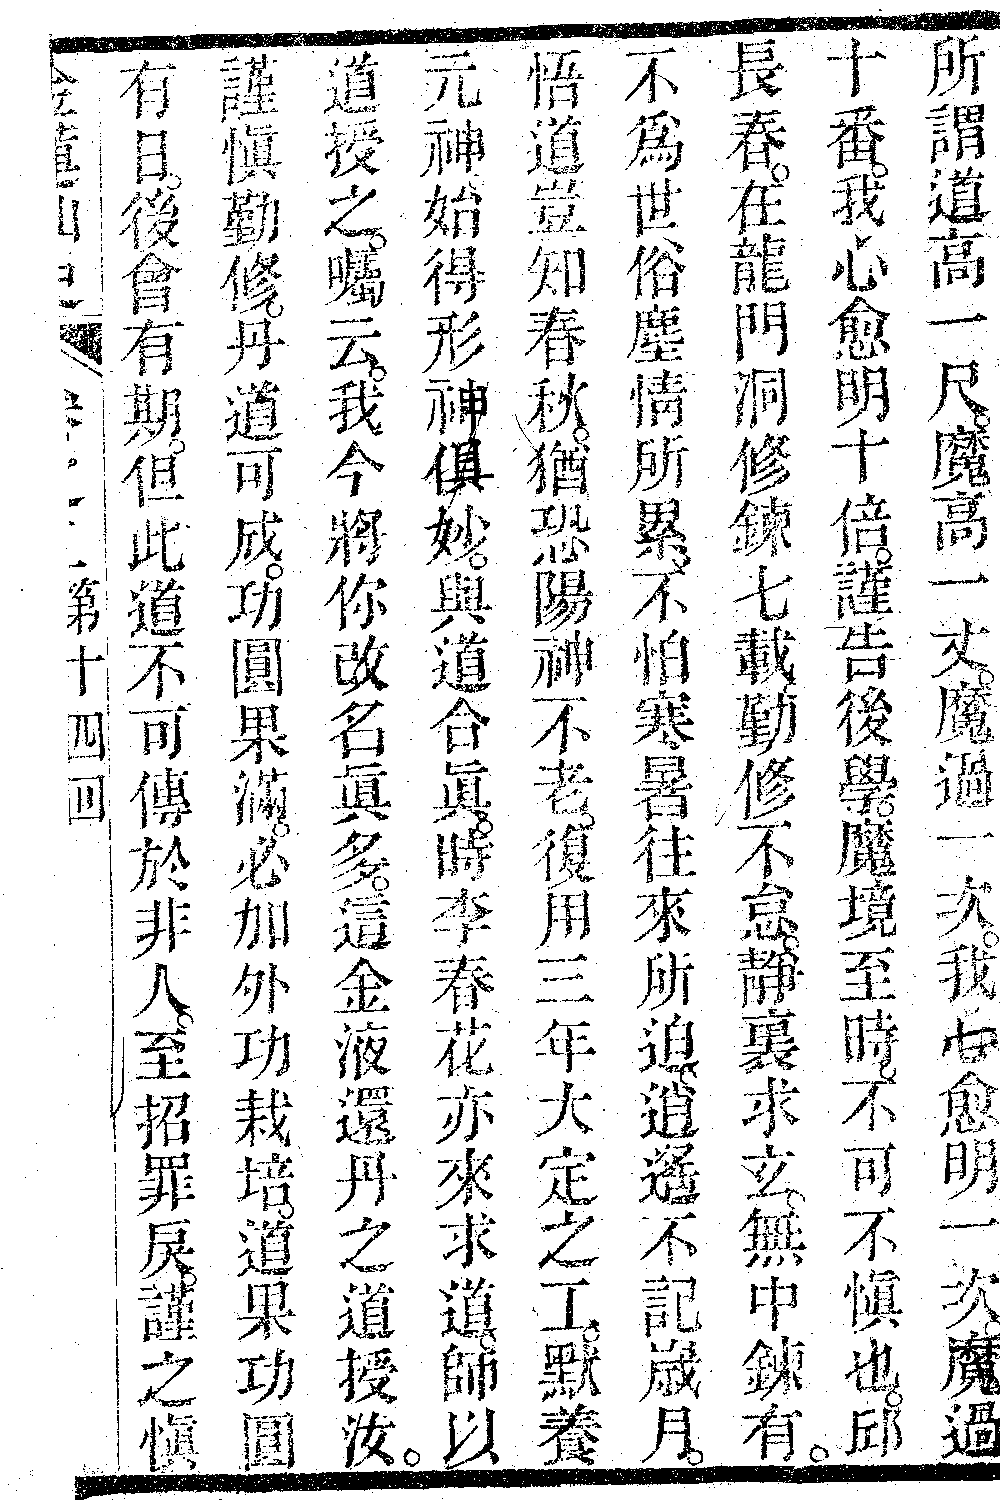 所謂道高一尺。魔高一丈。魔過一次。我心愈明一次。魔過
十番。我心愈明十倍。謹告後學。魔境至時。不可不慎也。邱
長春。在龍門洞修鍊七載勤修不怠。靜裏求玄。無中鍊有。
不為世俗塵情所累。不怕寒暑往來所迫。逍遙不記歲月。
悟道豈知春秋。猶恐陽神不老。復用三年大定之工。默養
元神。始得形神俱妙。與道合眞。時李春花亦來求道。師以
道授之。囑云。我今將你改名眞多。這金液還丹之道授汝。
謹慎勤修。丹道可成。功圓果滿。必加外功栽培。道果功圓
有日。後會有期。但此道不可傳於非人。至招罪戾。謹之慎
第十四回